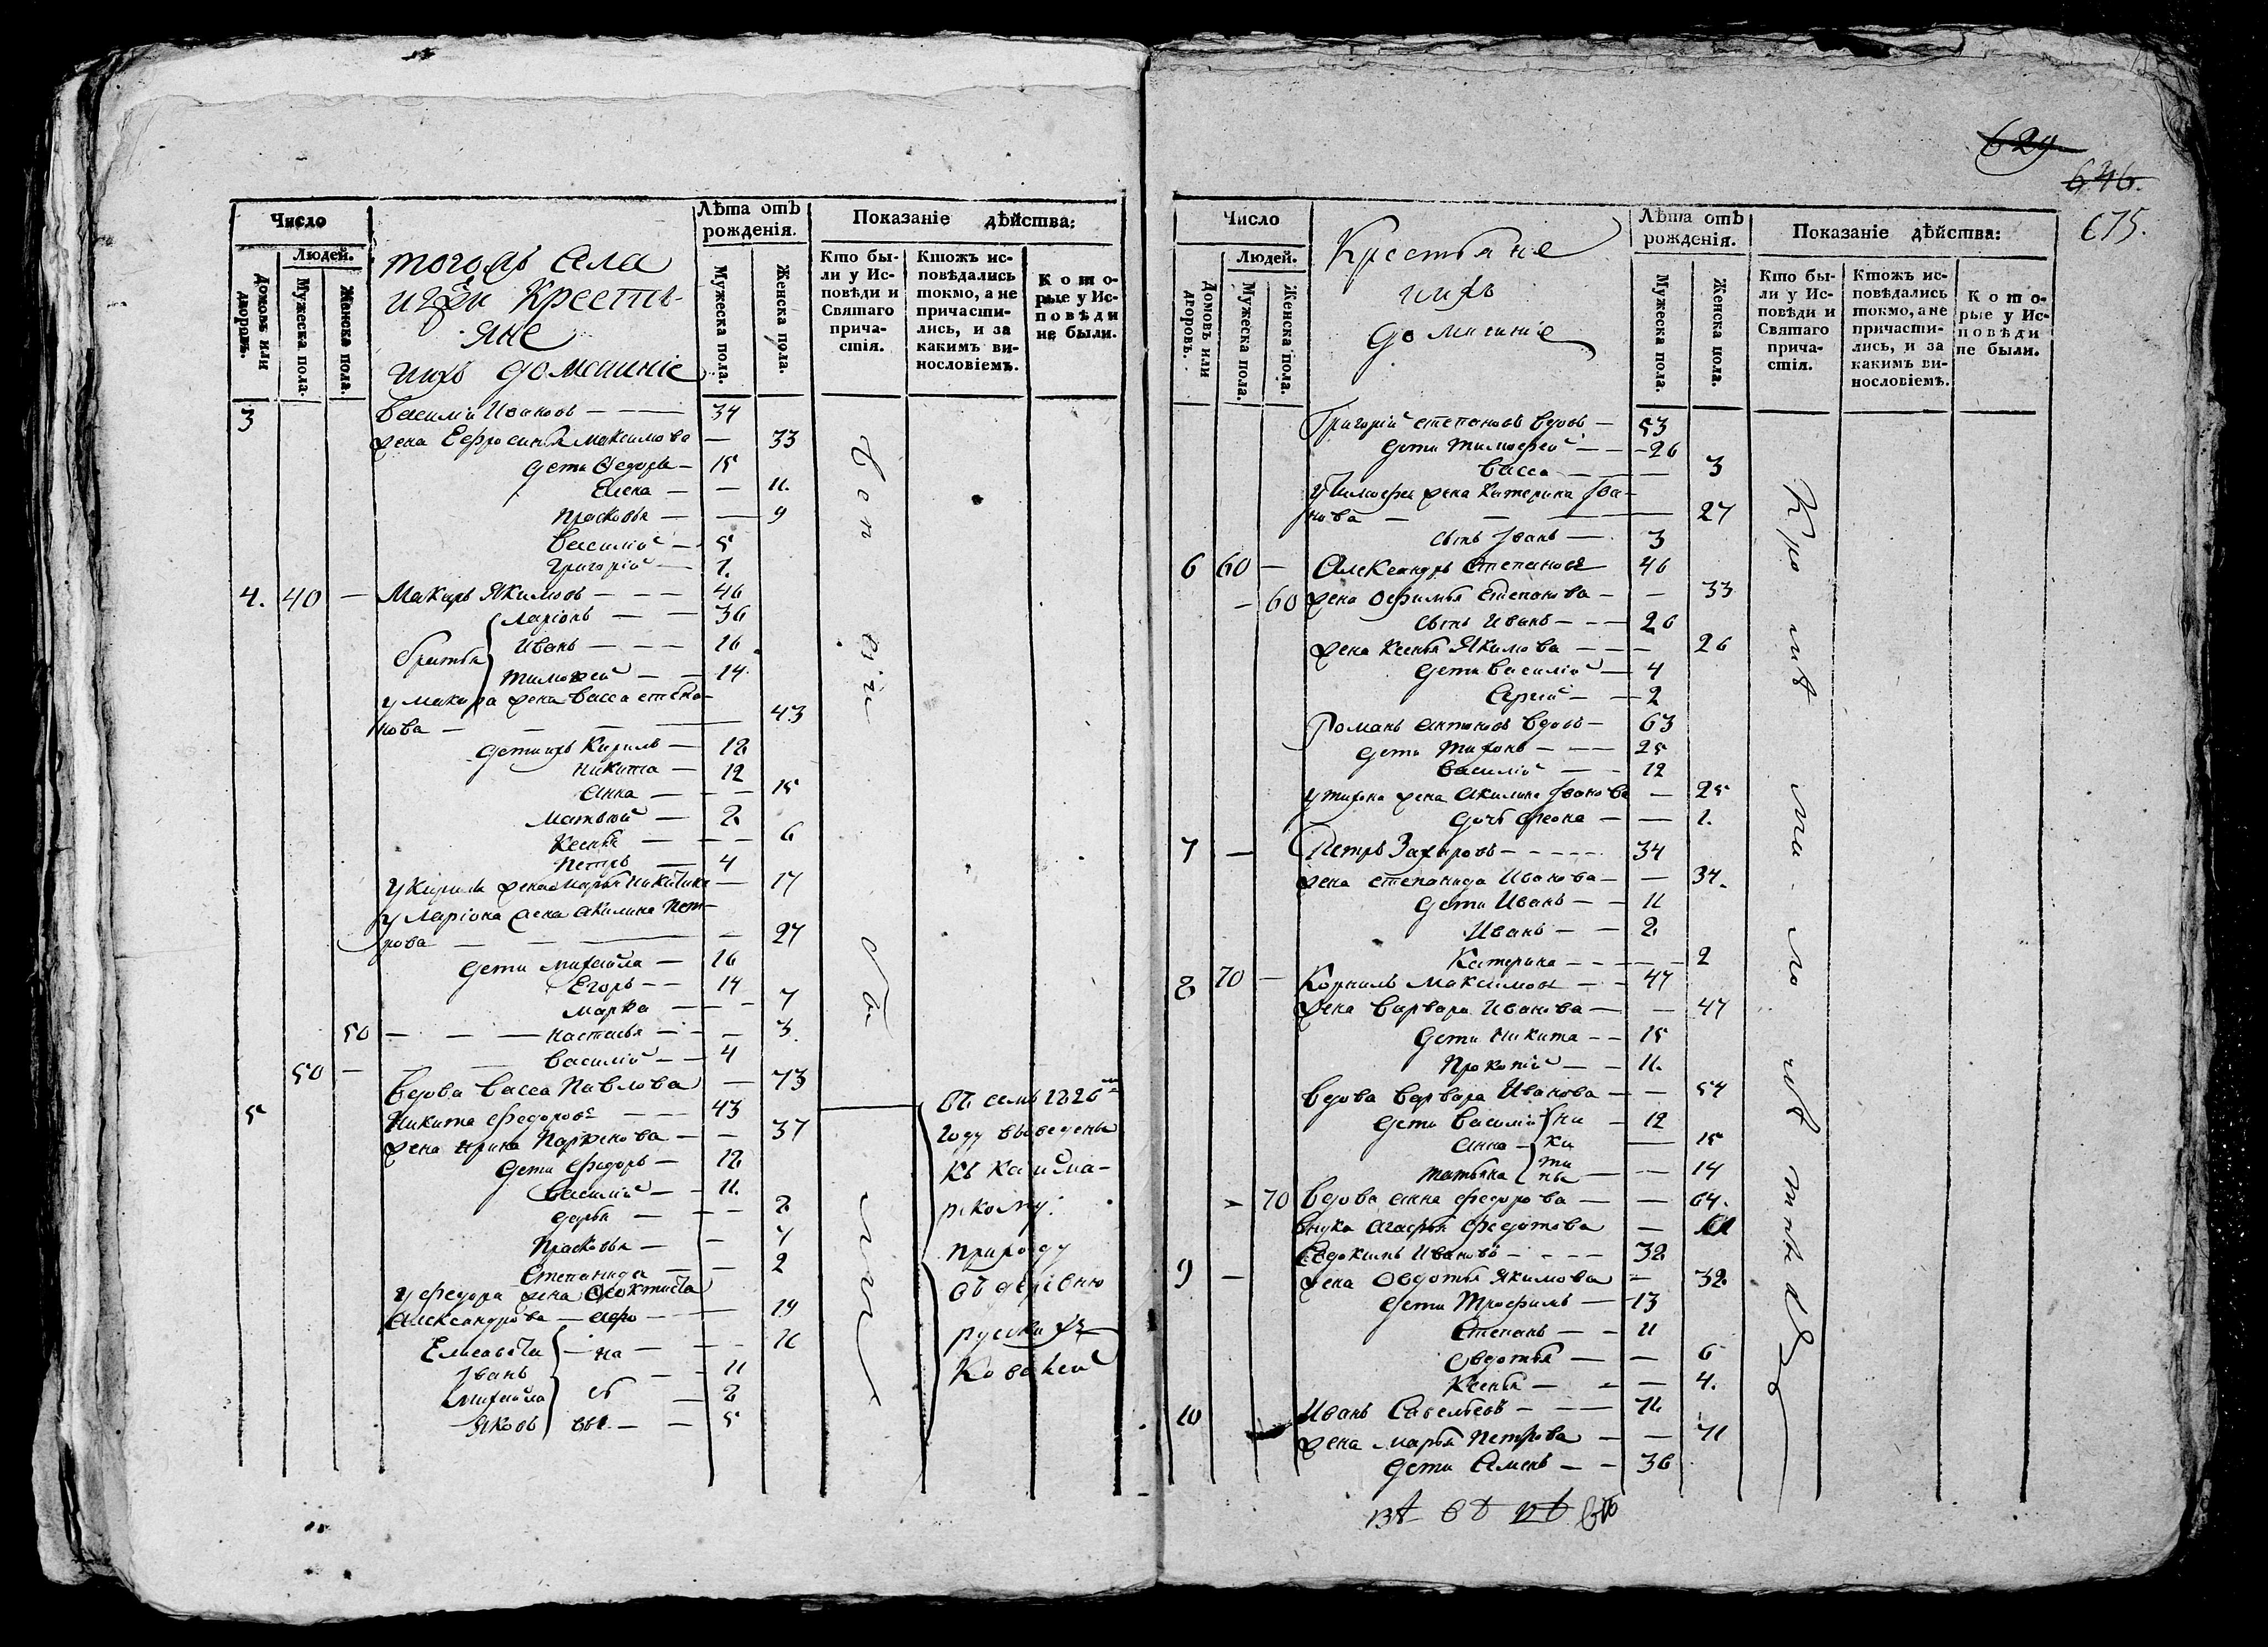 Число
Людей.
Домовъ или дворовъ.
Мужеска пола.
Женска пола.
Крестьяне
ихъ домашніе
Лѣта отъ рожденія.
Мужеска пола.
Женска пола.
Показаніе дѣйства:
Кто бы-
ли у Ис-
повѣди и
Святаго
прича-
стія.
Ктожъ ис-
повѣдались
токмо, а не
причасти-
лись, и за
какимъ ви-
нословіемъ.
Кото-
рые у Ис-
повѣди
не были.
3 Василий Ивановъ — 34
жена Ефросинья Максимова — 33
дети Федоръ — 15
Елена — 11
Прасковья — 9
Василий — 5
Григорій — 1
4. 40 — Макаръ Якимовъ — 46
братья
Ларіонъ — 36
Иванъ — 16
Тимофей — 14
у Макара жена Васса Степа-
нова — 43
дети ихъ Кирилъ — 18
Никита — 12
Анна — 15
Матвей — 2
Ксенья — 6
Петръ — 4
у Кирила жена Марья Никитина — 17
у Ларіона жена Акилина Пет-
рова — 27
дети Михайла — 16
Егоръ — 14
Марка — 7
50 — Настасья — 3
50 — Василий — 4
Вдова Васса Павлова — 73
5 Никита Федоровъ — 43
жена Ирина Парфенова — 37
дети Федоръ — 18
Василий — 11
Дарья — 8
Прасковья — 4
Степанида — 2
у Федора жена Феоктиста
Александрова — 19
Елисавета — 16
Іванъ — 11
Михайла — 8
Яковъ — 5
году выведены
природу
въ деревню
629
646.
675.
Число
Людей.
Домовъ или дворовъ.
Мужеска пола.
Женска пола.
Крестьяне
ихъ
домашніе
Лѣта отъ рожденія.
Мужеска пола.
Женска пола.
Показаніе дѣйства:
Кто бы-
ли у Ис-
повѣди и
Святаго
прича-
стія.
Ктожъ ис-
повѣдались
токмо, а не
причасти-
лись, и за
какимъ ви-
нословіемъ.
Кото-
рые у Ис-
повѣди
не были.
Григорій Степановъ вдовъ — 53
дети Тимофей — 26
Васса — 3
у Тимофея жена Катерина Іва-
нова — 27
сынъ Іванъ — 3
6 60 — Александръ Степановъ — 46
— 60 жена Офимья Степанова — 33
сынъ Иванъ — 26
жена Ксенья Якимова — 26
дети Василий — 4
Сергий — 2
Романъ Антоновъ вдовъ — 63
дети Тихонъ — 25
Василий — 12
у Тихона жена Акилина Іванова — 25
дочь Феона — 1
7 — Петръ Захаровъ — 34
жена Степанида Иванова — 34.
дети Иванъ — 11
Иванъ — 2
Катерина — 2
8 70 — Корнилъ Максимовъ — 47
жена Варвара Иванова — 47
дети Никита — 15
Прокопій — 11
вдова Варвара Иванова — 54
дети Василий — 12
Анна — 15
Татьяна — 14
Никитины
70 Вдова Анна Федорова — 64.
внука Агафья Федотова —
9 — Евдокимъ Ивановъ — 32
жена Овдотья Якимова — 32
дети Трофимъ — 13
Степанъ — 11
Овдотья — 6
Ксенья — 4.
10 Иванъ Савельевъ — 71
жена Марья Петрова — 71
дети Семенъ — 36